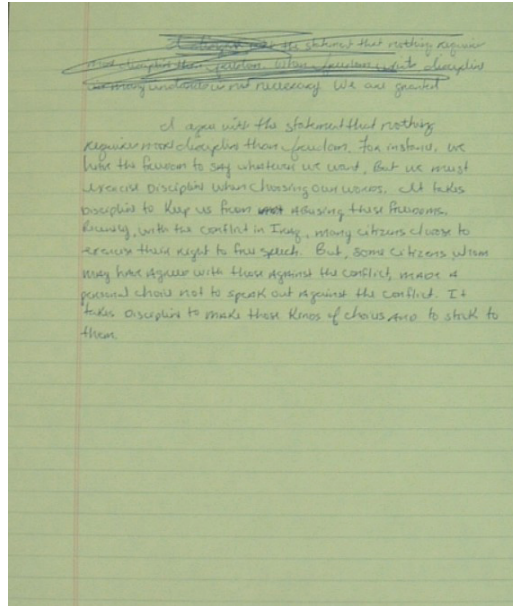 the statement that nothing requires
more discipline than freedom. When freedom discipline
in many not necessary. We are granted
I agree with the statement that nothing
requires more discipline than freedom. For instance, we
have the freedom to say whatever we want, But we must
exercise Discipline when choosing our words. It takes
Discipline to keep us from abusing these freedoms.
Recently, with the conflict in Iraq, many citizens choose to
exercise their right to free speech. But, some citizens whom
may have agreed with those against the conflict, made a
personal choice not to speak out against the conflict. It
takes discipline to make those kinds of choices and to stick to
them.